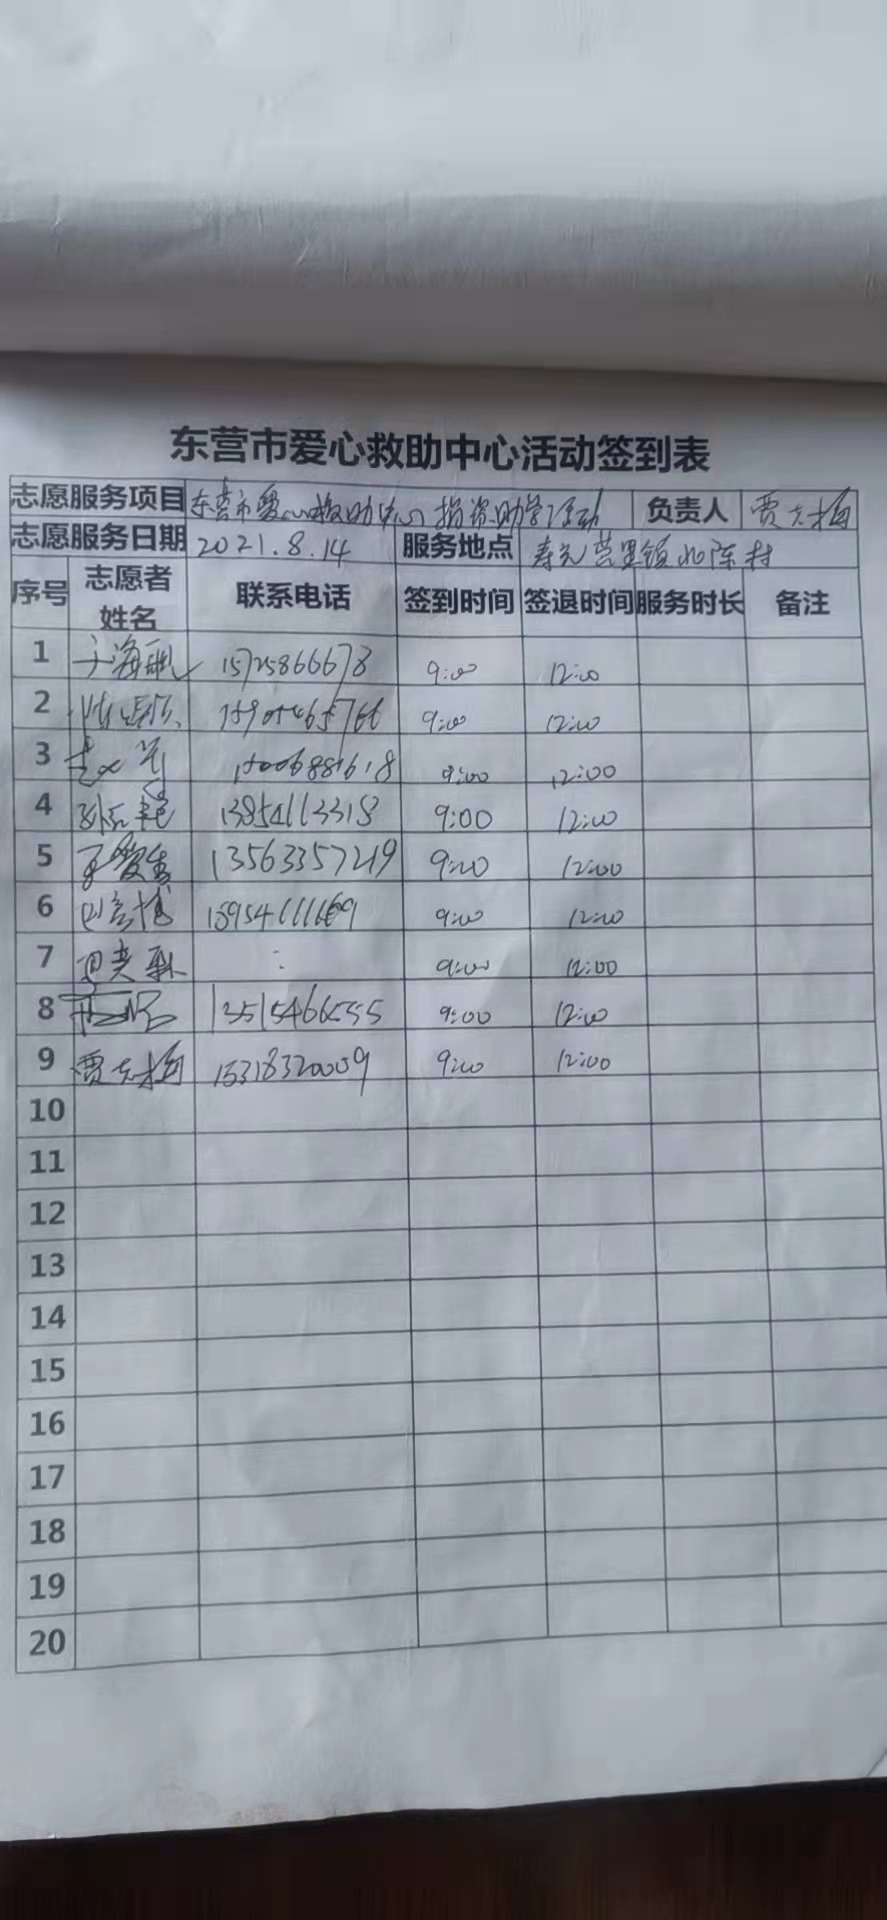 东营市爱心救助中心活动签到表
志愿服务项目 东营市爱心救助中心捐资助学活动 负责人 贾克梅
志愿服务日期 2021.8.14 服务地点 寿光营里镇北陈村
序号 志愿者姓名 联系电话 签到时间 签退时间 服务时长 备注
1 15725866678 9:00 12:00
2 9:00 12:00
3 15006881618 9:00 12:00
4 13854663318 9:00 12:00
5 13563357219 9:00 12:00
6 9:00 12:00
7 : 9:00 12:00
8 13515466555 9:00 12:00
9 贾克梅 15318320009 9:00 12:00
10
11
12
13
14
15
16
17
18
19
20